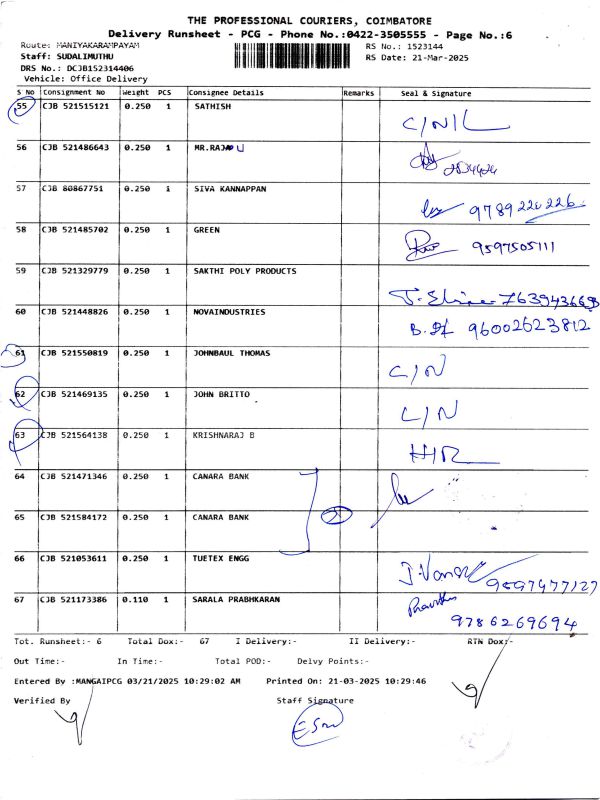 THE PROFESSIONAL COURIERS, COIMBATORE
Delivery Runsheet - PCG - Phone No.:0422-3505555 - Page No.:6
Route: MANIYAKARAMPAYAM RS No.: 1523144
Staff: SUDALIMUTHU RS Date: 21-Mar-2025
DRS No.: DCJB152314406
Vehicle: Office Delivery
S No Consignment No Weight PCS Consignee Details Remarks Seal & Signature
55 CJB 521515121 0.250 1 SATHISH C/N/L
56 CJB 521486643 0.250 1 MR.RAJU
57 CJB 80867751 0.250 1 SIVA KANNAPPAN 9789220226
58 CJB 521485702 0.250 1 GREEN 9597505111
59 CJB 521329779 0.250 1 SAKTHI POLY PRODUCTS 7639436693
60 CJB 521448826 0.250 1 NOVAINDUSTRIES 96002623812
61 CJB 521550819 0.250 1 JOHNBAUL THOMAS C/N
62 CJB 521469135 0.250 1 JOHN BRITTO C/N
63 CJB 521564138 0.250 1 KRISHNARAJ B
64 CJB 521471346 0.250 1 CANARA BANK
65 CJB 521584172 0.250 1 CANARA BANK
66 CJB 521053611 0.250 1 TUETEX ENGG 9597477127
67 CJB 521173386 0.110 1 SARALA PRABHKARAN 9786269694
Tot. Runsheet:- 6 Total Dox:- 67 I Delivery:- II Delivery:- RTN Dox:-
Out Time:- In Time:- Total POD:- Delvy Points:-
Entered By :MANGAIPCG 03/21/2025 10:29:02 AM Printed On: 21-03-2025 10:29:46
Verified By Staff Signature